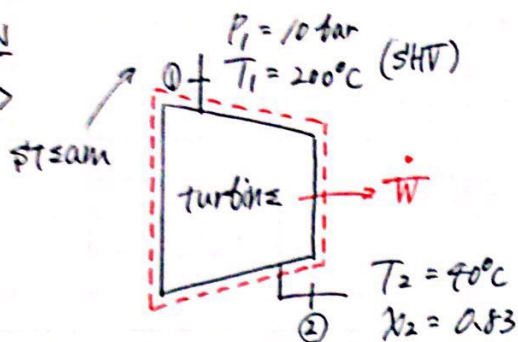 P₁ = 10 bar
① T₁ = 200°C (SHV)
steam
turbine
Ẇ
T₂ = 40°C
② x₂ = 0.83